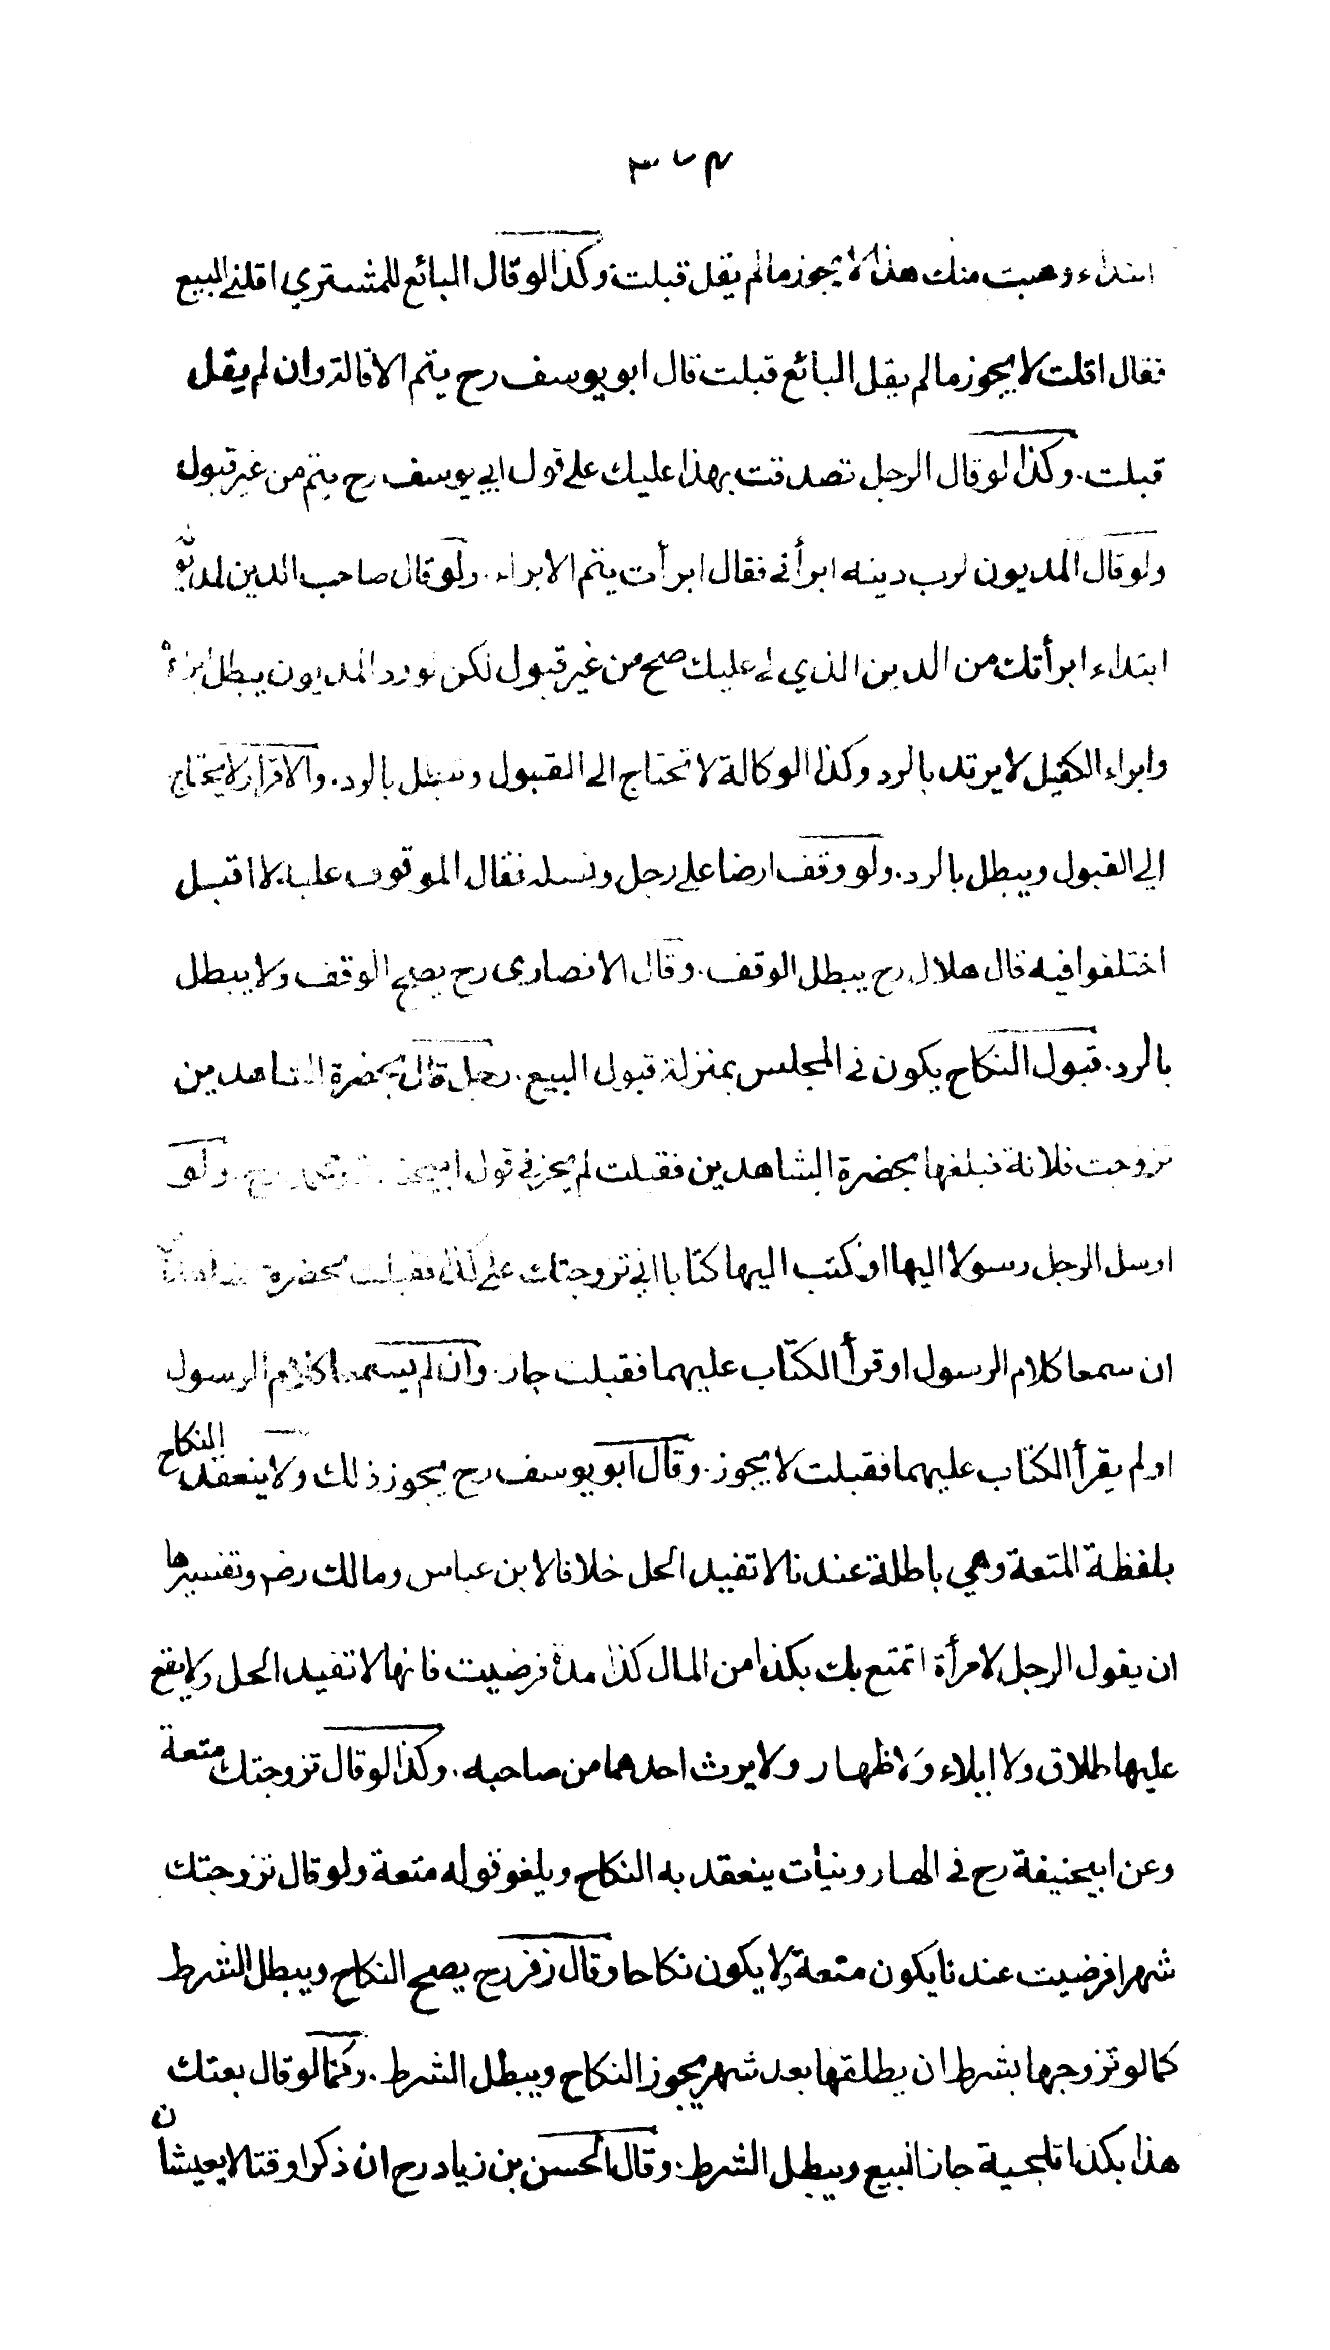 ابتداء وهبت منك هذا لا يجوز ما لم يقل قبلت وكذا لو قال البائع للمشتري اقلني البيع
فقال اقلت لا يجوز ما لم يقل البائع قبلت قال ابو يوسف رح يتم الاقالة وان لم يقل
قبلت. وكذا لو قال الرجل تصدقت بهذا عليك على قول ابي يوسف رح يتم من غير قبول
ولو قال المديون لرب دينه ابرأني فقال ابرأت يتم الابراء. ولو قال صاحب الدين لمديونه
ابتداء ابرأتك من الدين الذي لي عليك صح من غير قبول لكن لو رد المديون يبطل ابراءه
وابراء الكفيل لا يرتد بالرد وكذا الوكالة لا تحتاج الى القبول وتبطل بالرد. والاقرار لا يحتاج
الى القبول ويبطل بالرد. ولو وقف ارضا على رجل ونسله فقال الموقوف عليه لا اقبل
اختلفوا فيه قال هلال رح يبطل الوقف. وقال الانصاري رح يصح الوقف ولا يبطل
بالرد. قبول النكاح يكون في المجلس بمنزلة قبول البيع. رجل قال بحضرة الشاهدين
تزوجت فلانة فبلغها بحضرة الشاهدين فقبلت لم يجز في قول ابيحنيفة ومحمد رح. ولو
ارسل الرجل رسولا اليها او كتب اليها كتابا اني تزوجتك على كذا فقبلت بحضرة شاهدين
ان سمعا كلام الرسول او قرأ الكتاب عليهما فقبلت جاز. وان لم يسمعا كلام الرسول
او لم يقرأ الكتاب عليهما فقبلت لا يجوز. وقال ابو يوسف رح يجوز ذلك ولا ينعقد النكاح
بلفظة المتعة وهي باطلة عندنا لا تفيد الحل خلافا لابن عباس ومالك رضم وتفسيرها
ان يقول الرجل لامرأة اتمتع بك بكذا من المال كذا مدة فرضيت فانها لا تفيد الحل ولا يقع
عليها طلاق ولا ايلاء ولا ظهار ولا يرث احدهما من صاحبه. وكذا لو قال تزوجتك متعة
وعن ابيحنيفة رح في الهارونيات ينعقد به النكاح ويلغو قوله متعة ولو قال تزوجتك
شهرا فرضيت عندنا يكون متعة ولا يكون نكاحا وقال زفر رح يصح النكاح ويبطل الشرط
كما لو تزوجها بشرط ان يطلقها بعد شهر يجوز النكاح ويبطل الشرط. وكما لو قال بعتك
هذا بكذا تلجية جاز البيع ويبطل الشرط. وقال الحسن بن زياد رح ان ذكرا وقتا لا يعيشان